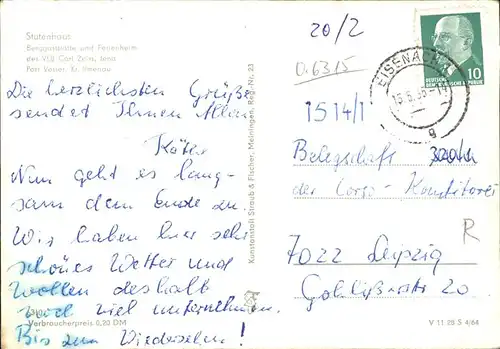 Stutenhaus
Berggaststätte und Ferienheim
des VEB Carl Zeiss, Jena
Post Vesser, Kr. Ilmenau
Die herzlichsten Grüße
sendet Ihnen Allen
Käthe
Nun geht es lang-
sam dem Ende zu.
Wir haben hier sehr
schönes Wetter und
wollen deshalb
noch viel unternehmen.
Bis zum Wiedersehn!
Verbraucherpreis 0,20 DM
Kunstanstalt Straub & Fischer, Meiningen, Reg.-Nr. 23
20/2
0.6315
1514/1
EISENACH
15.5.
g
DEUTSCHE
DEMOKRATISCHE REPUBLIK
10
Belegschaft
der Corso-Konditorei
R
7022 Leipzig
Gohliserstr 20
V 11 28 S 4/64